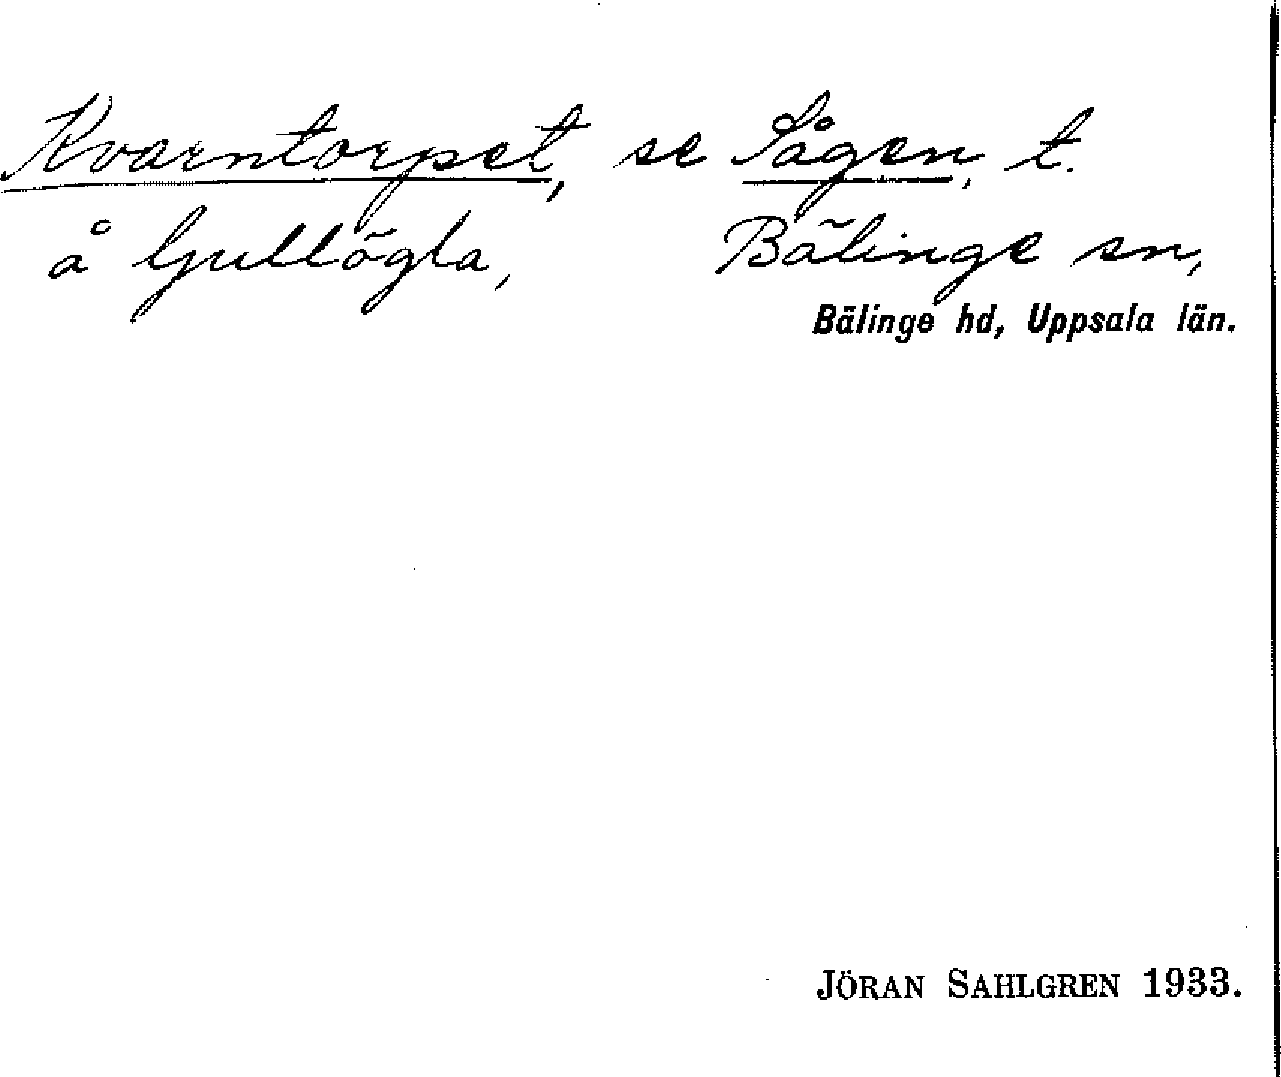 Kvarntorpet, se Sågen, t.
å Gullögla, Bälinge sn,
Bälinge hd, Uppsala län.
JÖRAN SAHLGREN 1933.